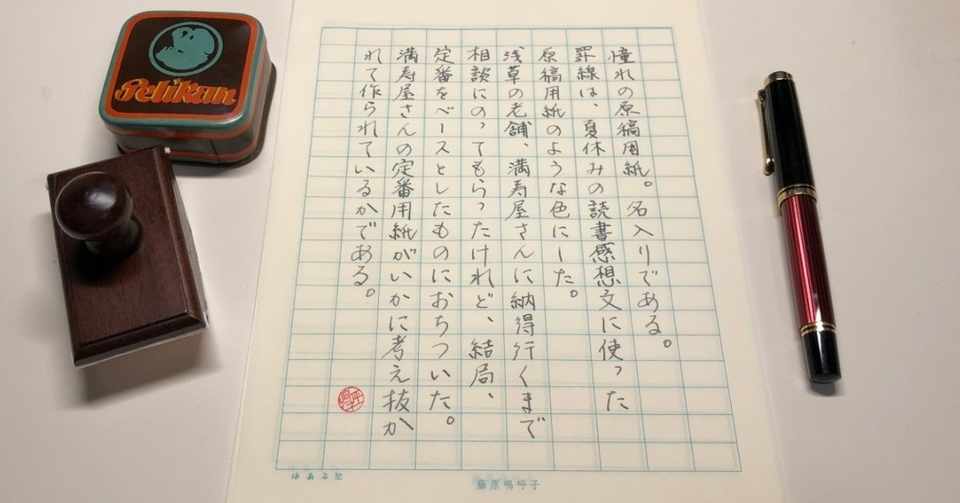 Pelikan
憧れの原稿用紙。名入りである。
罫線は、夏休みの読書感想文に使った
原稿用紙のような色にした。
浅草の老舗、満寿屋さんに納得行くまで
相談にのってもらったけれど、結局、
定番をベースとしたものにおちついた。
満寿屋さんの定番用紙がいかに考え抜か
れて作られているかである。